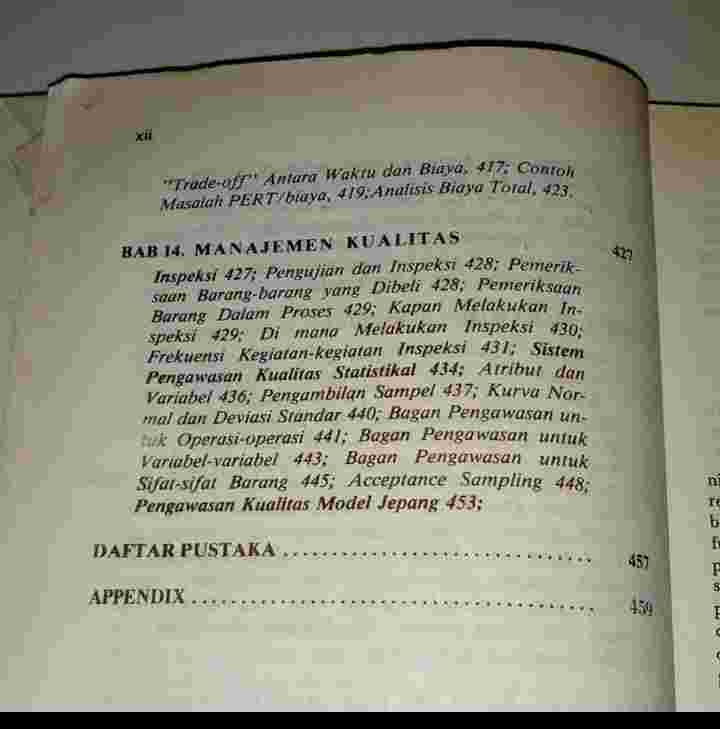 xii
"Trade-off" Antara Waktu dan Biaya, 417; Contoh
Masalah PERT/biaya, 419; Analisis Biaya Total, 423.
BAB 14. MANAJEMEN KUALITAS 427
Inspeksi 427; Pengujian dan Inspeksi 428; Pemerik-
saan Barang-barang yang Dibeli 428; Pemeriksaan
Barang Dalam Proses 429; Kapan Melakukan In-
speksi 429; Di mana Melakukan Inspeksi 430;
Frekuensi Kegiatan-kegiatan Inspeksi 431; Sistem
Pengawasan Kualitas Statistikal 434; Atribut dan
Variabel 436; Pengambilan Sampel 437; Kurva Nor-
mal dan Deviasi Standar 440; Bagan Pengawasan un-
tuk Operasi-operasi 441; Bagan Pengawasan untuk
Variabel-variabel 443; Bagan Pengawasan untuk
Sifat-sifat Barang 445; Acceptance Sampling 448;
Pengawasan Kualitas Model Jepang 453;
DAFTAR PUSTAKA ................................ 457
APPENDIX .......................................... 459